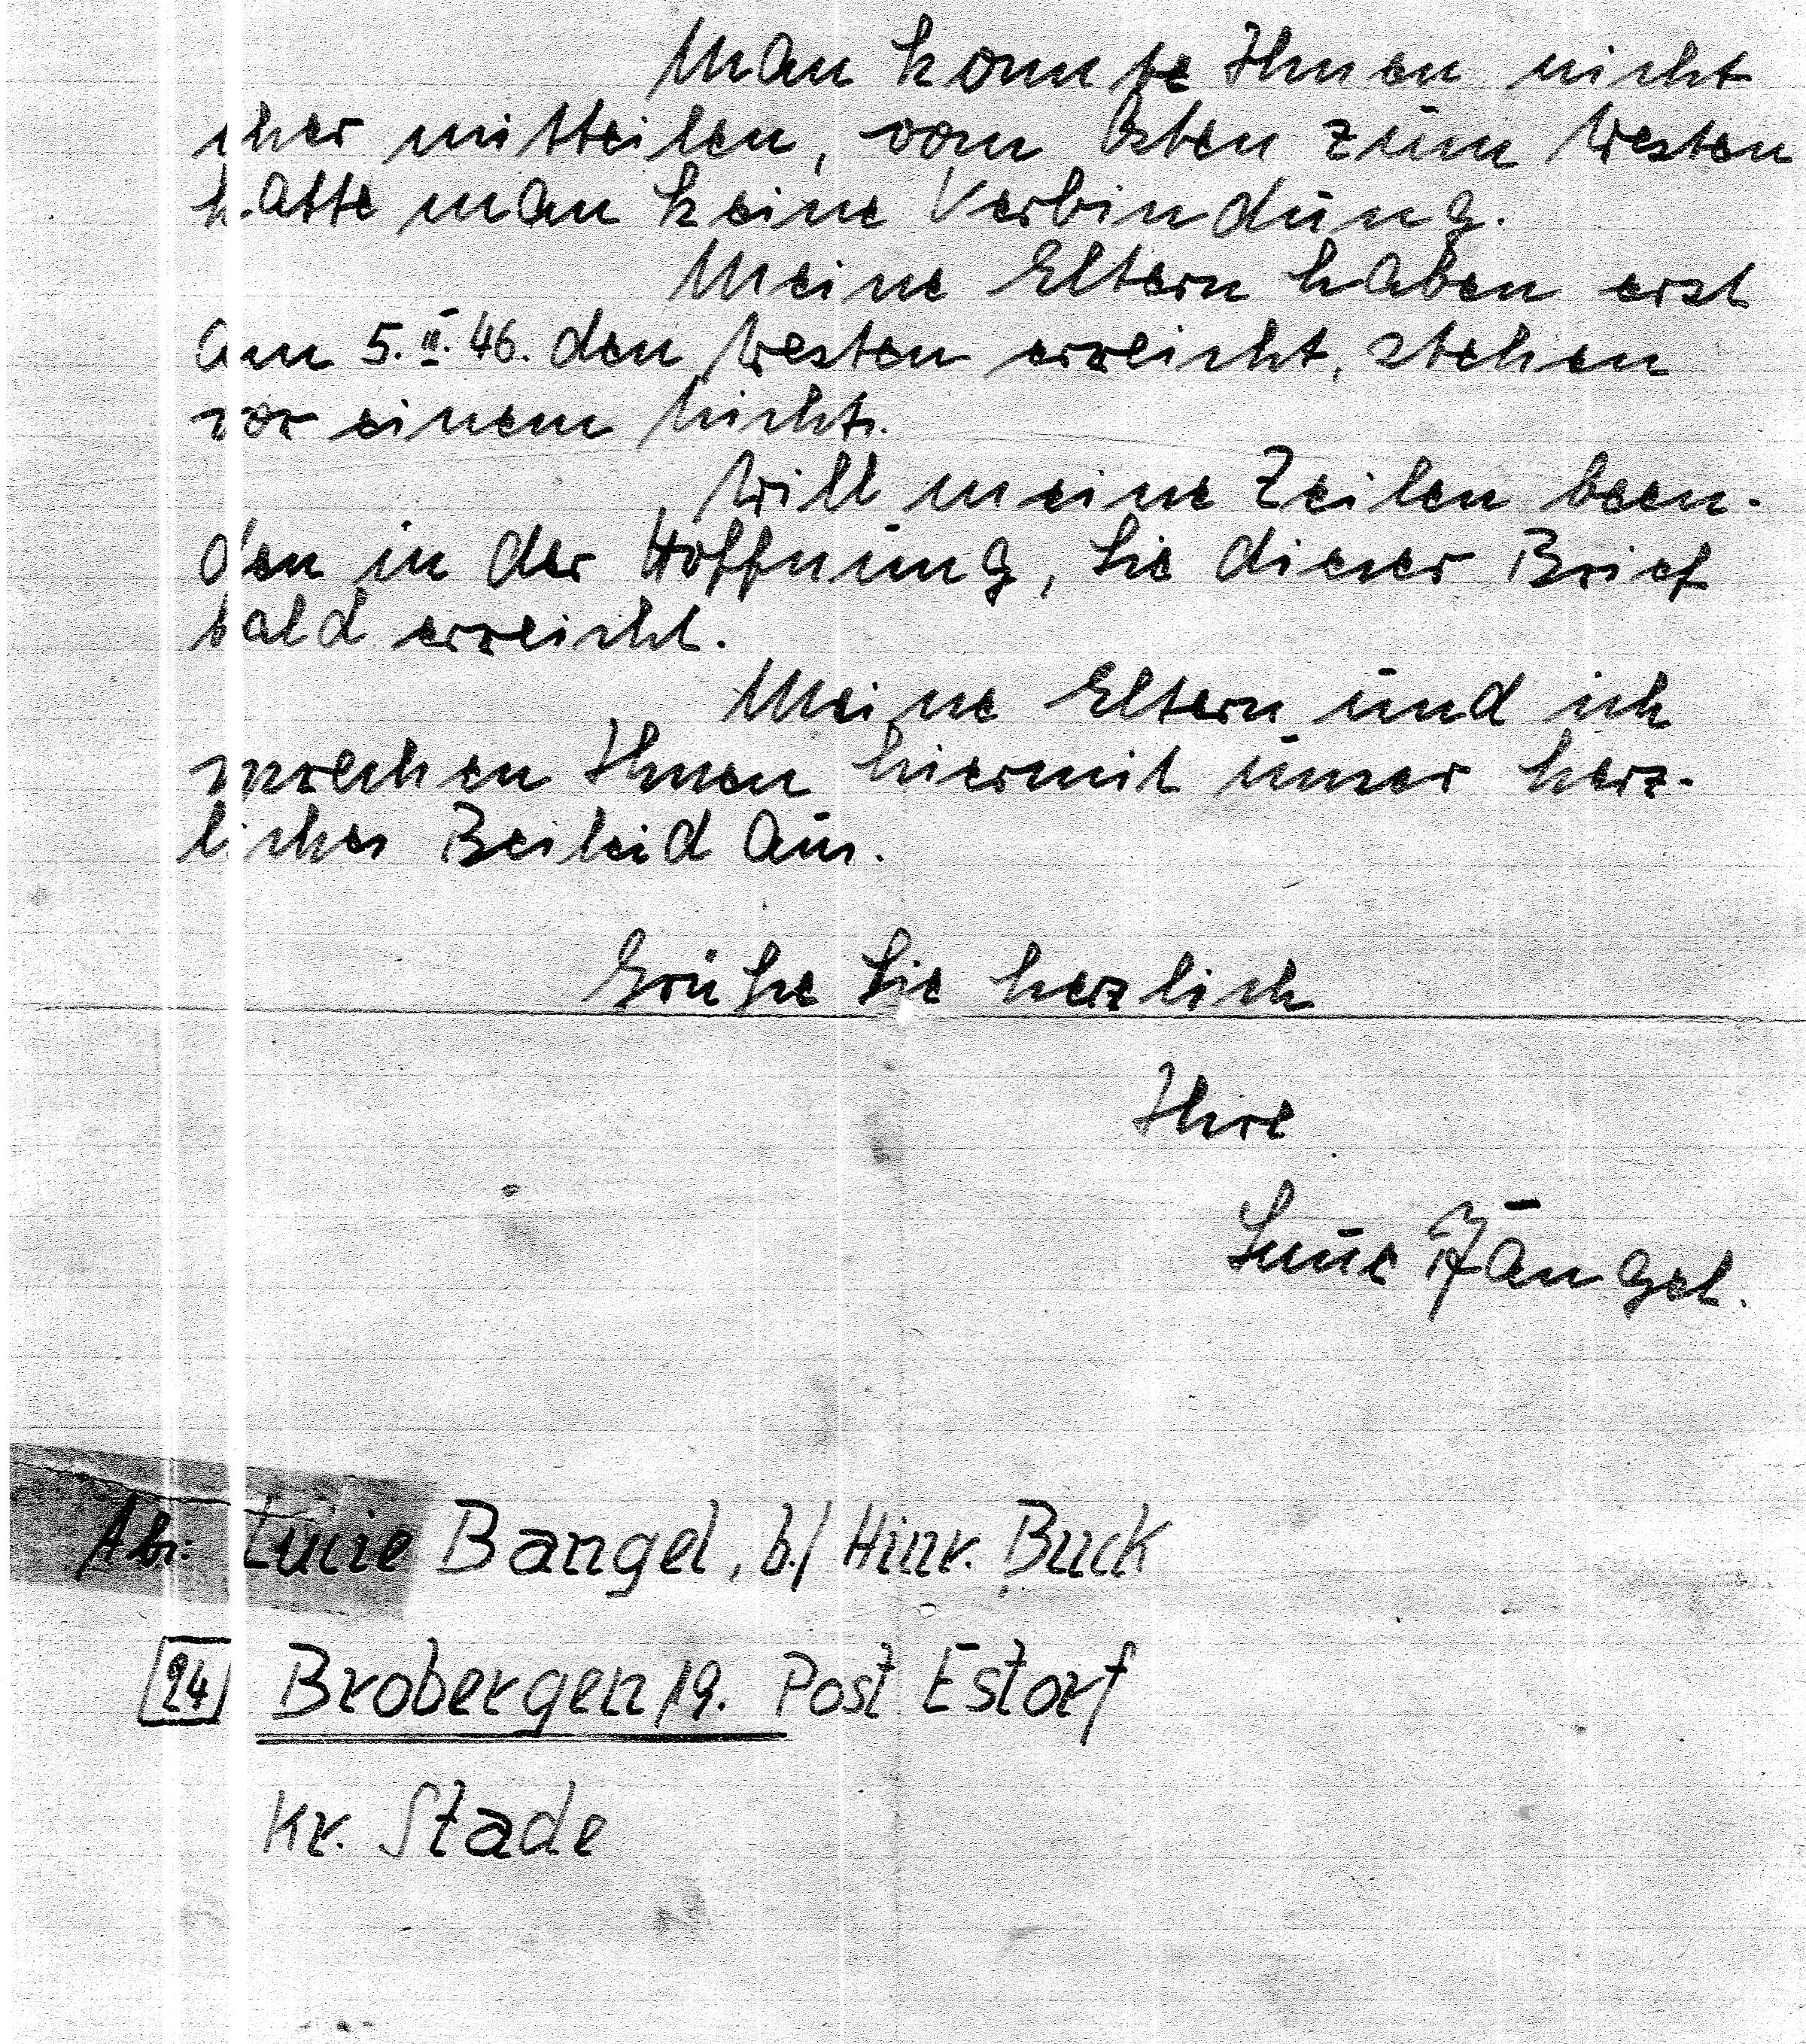 Man konnte Ihnen nicht
eher mitteilen, vom Osten zum Westen
hatte man keine Verbindung.
Meine Eltern haben erst
am 5. II. 46. den Westen erreicht, stehen
vor einem Nichts.
Will meine Zeilen been-
den in der Hoffnung, Sie dieser Brief
bald erreicht.
Meine Eltern und ich
sprechen Ihnen hiermit unser herz-
liches Beileid aus.
Grüße Sie herzlich
Ihre
Luzie Bangel.
Abs: Luzie Bangel, b./ Hinr. Buck
24 Brobergen 19. Post Estorf
Kr. Stade